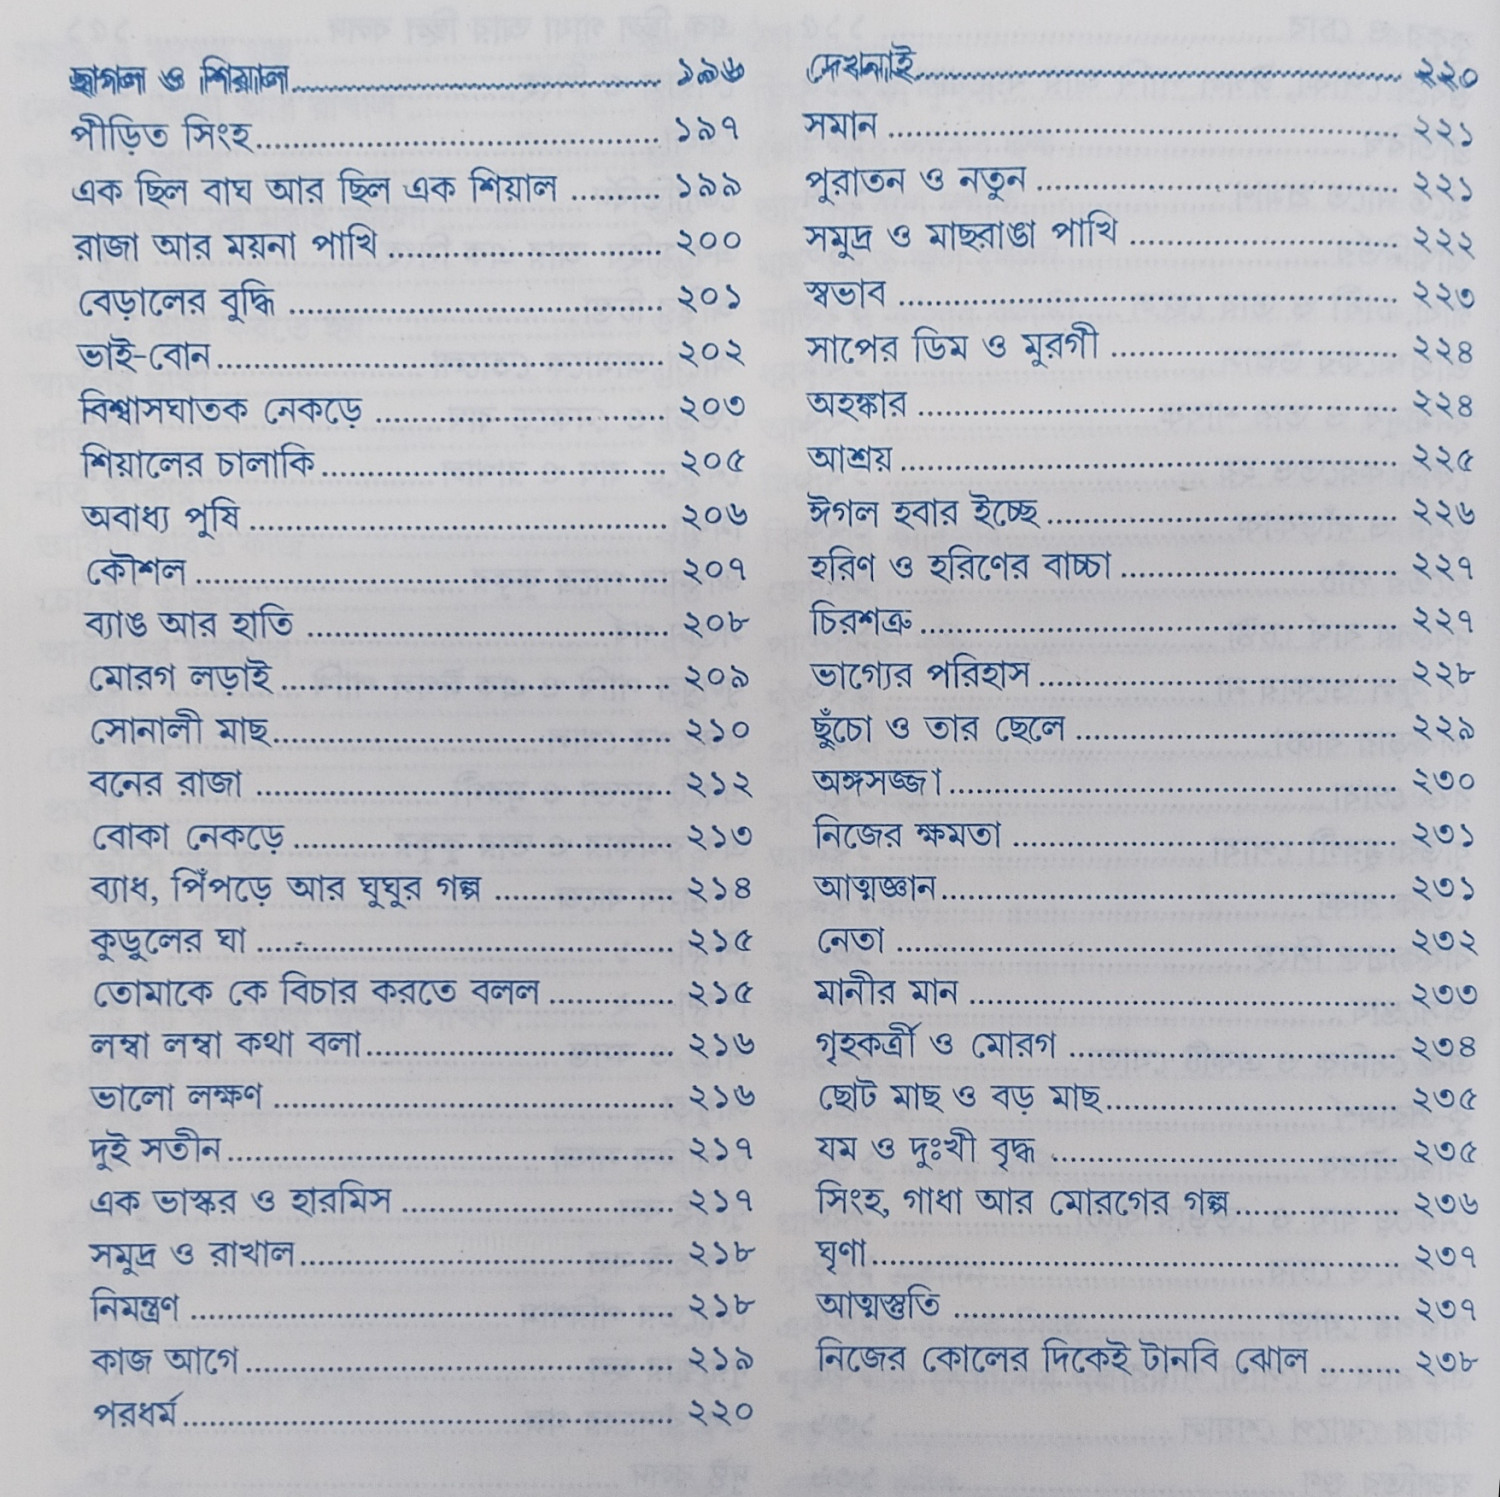 ছাগল ও শিয়াল ........ ১৯৬
পীড়িত সিংহ ........ ১৯৭
এক ছিল বাঘ আর ছিল এক শিয়াল ........ ১৯৯
রাজা আর ময়না পাখি ........ ২০০
বেড়ালের বুদ্ধি ........ ২০১
ভাই-বোন ........ ২০২
বিশ্বাসঘাতক নেকড়ে ........ ২০৩
শিয়ালের চালাকি ........ ২০৫
অবাধ্য পুষি ........ ২০৬
কৌশল ........ ২০৭
ব্যাঙ আর হাতি ........ ২০৮
মোরগ লড়াই ........ ২০৯
সোনালী মাছ ........ ২১০
বনের রাজা ........ ২১২
বোকা নেকড়ে ........ ২১৩
ব্যাধ, পিঁপড়ে আর ঘুঘুর গল্প ........ ২১৪
কুড়ুলের ঘা ........ ২১৫
তোমাকে কে বিচার করতে বলল ........ ২১৫
লম্বা লম্বা কথা বলা ........ ২১৬
ভালো লক্ষণ ........ ২১৬
দুই সতীন ........ ২১৭
এক ভাস্কর ও হারমিস ........ ২১৭
সমুদ্র ও রাখাল ........ ২১৮
নিমন্ত্রণ ........ ২১৮
কাজ আগে ........ ২১৯
পরধর্ম ........ ২২০
দেখনাই ........ ২২০
সমান ........ ২২১
পুরাতন ও নতুন ........ ২২১
সমুদ্র ও মাছরাঙা পাখি ........ ২২২
স্বভাব ........ ২২৩
সাপের ডিম ও মুরগী ........ ২২৪
অহঙ্কার ........ ২২৪
আশ্রয় ........ ২২৫
ঈগল হবার ইচ্ছে ........ ২২৬
হরিণ ও হরিণের বাচ্চা ........ ২২৭
চিরশত্রু ........ ২২৭
ভাগ্যের পরিহাস ........ ২২৮
ছুঁচো ও তার ছেলে ........ ২২৯
অঙ্গসজ্জা ........ ২৩০
নিজের ক্ষমতা ........ ২৩১
আত্মজ্ঞান ........ ২৩১
নেতা ........ ২৩২
মানীর মান ........ ২৩৩
গৃহকর্ত্রী ও মোরগ ........ ২৩৪
ছোট মাছ ও বড় মাছ ........ ২৩৫
যম ও দুঃখী বৃদ্ধ ........ ২৩৫
সিংহ, গাধা আর মোরগের গল্প ........ ২৩৬
ঘৃণা ........ ২৩৭
আত্মস্তুতি ........ ২৩৭
নিজের কোলের দিকেই টানবি ঝোল ........ ২৩৮